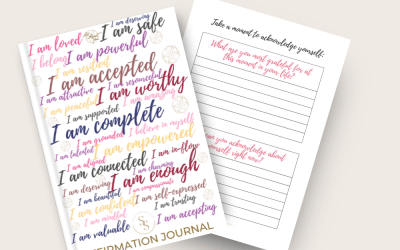 I am deserving
I am loved I am safe
I belong I am powerful
I am resilient
I am accepted
I am attractive I am resourceful
I am peaceful I am worthy
I am supported
I am complete
I am grounded I believe in myself
I am talented I am empowered
I am aligned
I am connected I am in-flow
I am charming
I am deserving I am enough
I am beautiful I am compassionate
I am confident I am self-expressed
I am mindful I am trusting
I am valuable I am accepting
FIRMATION JOURNAL
Take a moment to acknowledge yourself:
What are you most grateful for at
this moment in your life?
you acknowledge about
yourself right now?